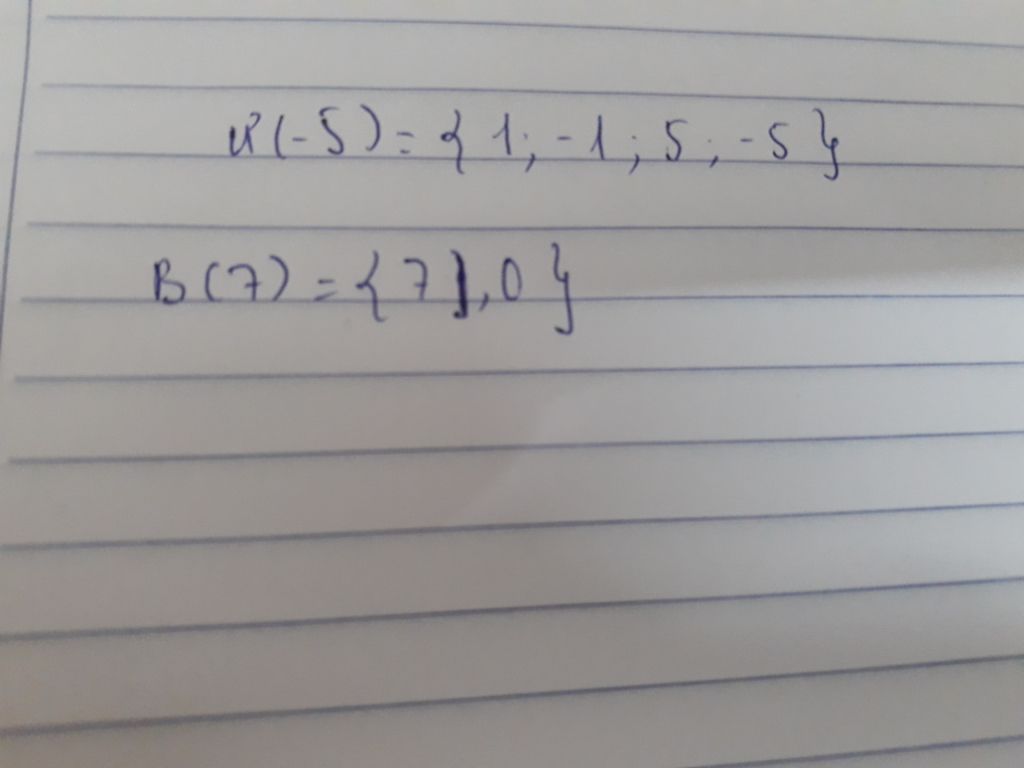 Ư(-5) = { 1; -1; 5; -5 }
B(7) = { 7 ,0 }